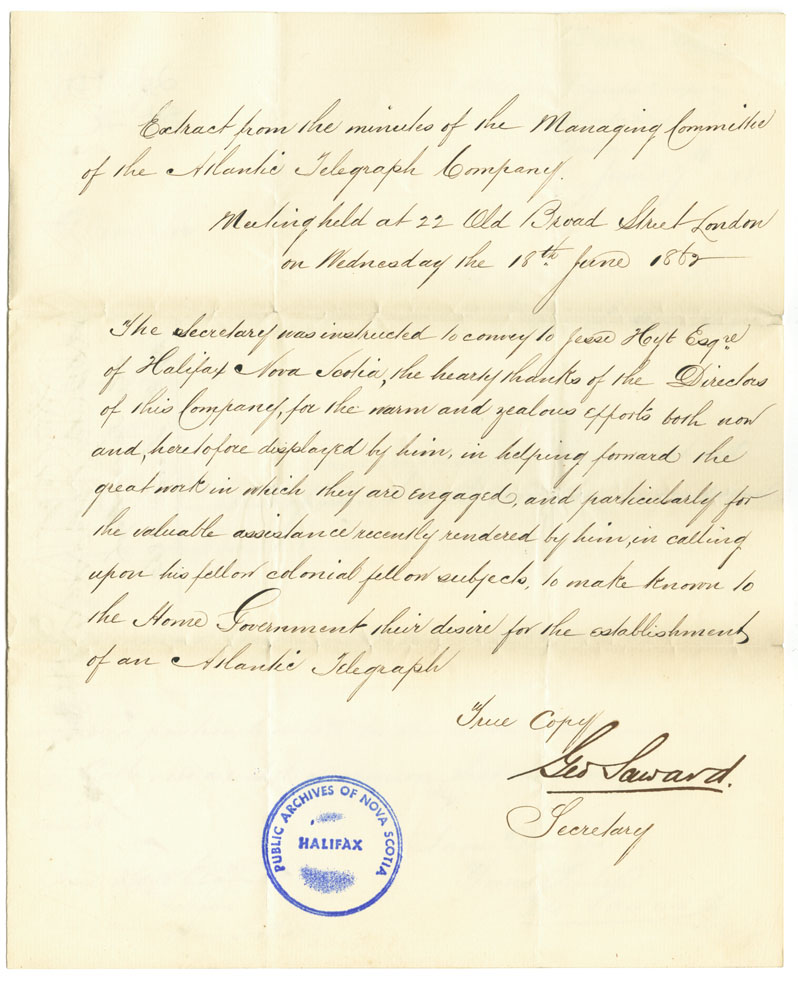 Extract from the minutes of the Managing Committee
of the Atlantic Telegraph Company.
Meeting held at 22 Old Broad Street London
on Wednesday the 18th. June 1862
The Secretary was instructed to convey to Jesse Hoyt Esqre
of Halifax Nova Scotia, the hearty thanks of the Directors
of this Company, for the warm and zealous efforts both now
and, heretofore displayed by him, in helping forward the
great work in which they are engaged, and particularly for
the valuable assistance recently rendered by him, in calling
upon his fellow colonial fellow subjects, to make known to
the Home Government their desire for the establishment
of an Atlantic Telegraph
True Copy
Geo Saward.
Secretary
PUBLIC ARCHIVES OF NOVA SCOTIA
HALIFAX